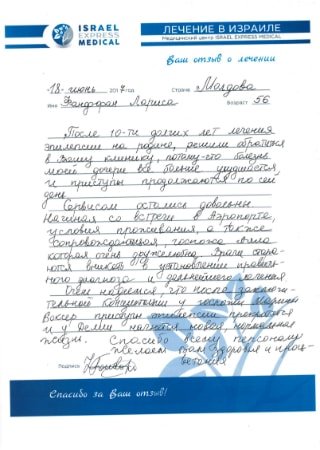 ISRAEL
EXPRESS
MEDICAL
ЛЕЧЕНИЕ В ИЗРАИЛЕ
Медицинский центр ISRAEL EXPRESS MEDICAL
Ваш отзыв о лечении
18 июнь 2017 года Страна Молдова
Имя Лариса Возраст 56
После 10-ти долгих лет лечения
эпилепсии на родине, решили обратится
в Вашу клинику, потому-что болезнь
моей дочери все больше ухудшается,
и приступы продолжаются по сей
день.
Сервисом остались довольны
Начиная со встречи в Аэропорте,
условия проживания, а также
сопровождающая, госпожа Алла
которая очень дружелюбна. Врачи стара-
ются вникать в установлении правиль-
ного диагноза и дальнейшего лечения
Очень надеемся, что после заключи-
тельной консультации у госпожи Марины
приступы эпилепсии прекратятся
и у начнётся новая, нормальная
жизнь. Спасибо всему персоналу
Желаем Вам здоровья и процве-
тания
Подпись
Спасибо за Ваш отзыв!